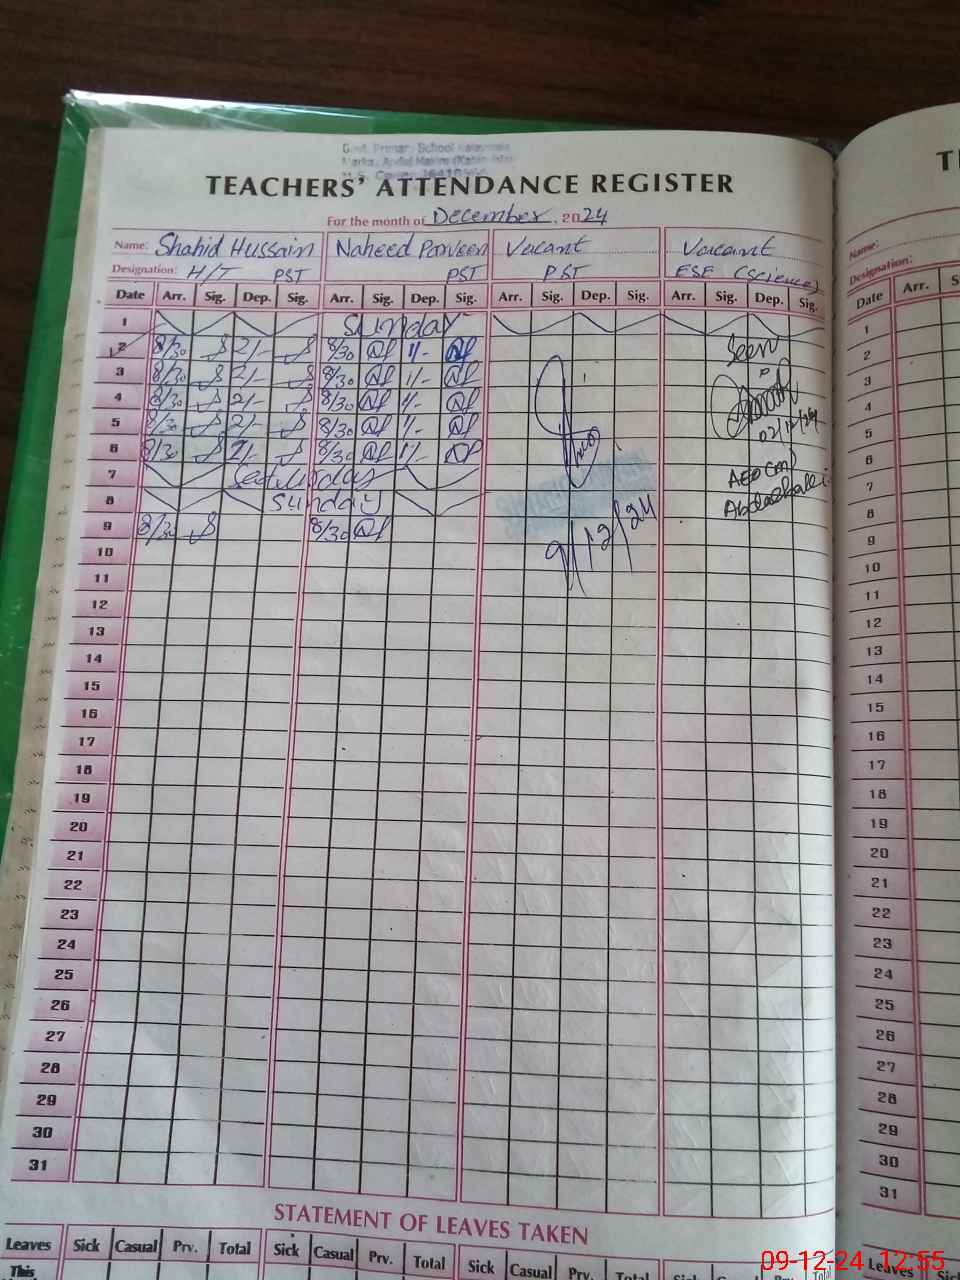 Govt. Primary School
TEACHERS' ATTENDANCE REGISTER
For the month of December. 2024
Name: Shahid Hussain Naheed Parveen Vacant Vacant
Designation: H/T PST PST PST ESE (Science)
Date Arr. Sig. Dep. Sig. Arr. Sig. Dep. Sig. Arr. Sig. Dep. Sig. Arr. Sig. Dep. Sig.
1 Sunday
2 8/30 2/- 8/30 1/- Seen
3 8/30 2/- 8/30 1/-
4 8/30 2/- 8/30 1/-
5 8/30 2/- 8/30 1/- 02/12/24
6 8/30 2/- 8/30 1/-
7 Saturday AEO
8 Sunday
9 8/30 8/30 9/12/24
10
11
12
13
14
15
16
17
18
19
20
21
22
23
24
25
26
27
28
29
30
31
STATEMENT OF LEAVES TAKEN
Leaves Sick Casual Prv. Total Sick Casual Prv. Total Sick Casual Prv. Total Sick Casual Prv. Total
This
Name:
Designation:
Date Arr.
1
2
3
4
5
6
7
8
9
10
11
12
13
14
15
16
17
18
19
20
21
22
23
24
25
26
27
28
29
30
31
Leaves
09-12-24 12:55